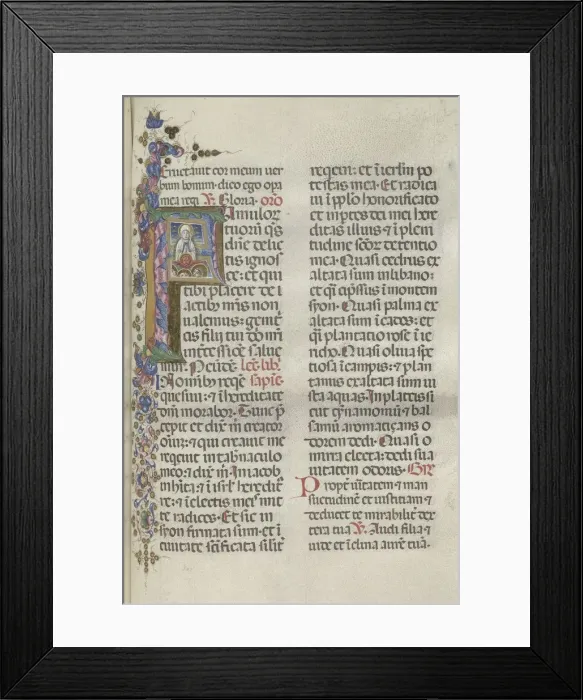 Eructauit cor meum uer
bum bonum · dico ego opa
mea regi ℣. Gloria · oro
Famulor
tuorum qs
dñe delic
tis ignos
ce : et qui
tibi placere de
actib nris non
ualemus : 
cis filii tui 
saluemur
lec lib
In omnib reqe sapie
quesiui : et i hereditate
dñi morabor · Tunc p
cepit et dix m creator
oium : et qui creauit me
requieuit in tabnaculo
meo : et dix m In iacob
inhita : et i isrl heredita
re : et i electis meis mit
te radices · Et sic in
syon firmata sum · et i
ciuitate scificata silit
requieui : et i ierlm po
testas mea · Et radica
ui i pplo honorificato
et in ptes dei mei here
ditas illius : et i pleni
tudine scor detentio
mea · Quasi cedrus ex
altata sum i libano :
et qsi cipssus i monte
syon · Quasi palma ex
altata sum i cades : et
qsi plantatio rose i ie
richo · Quasi oliua spe
tiosa i campis : et plan
tanus exaltata sum iu
sta aquas · In plateis si
cut cynamomu et bal
samu aromatiçans o
dorem dedi · Quasi o
mirra electa : dedi sua
uitatem odoris · Gr
Propt ueritatem et man
suetudine et iustitiam : et
deducet te mirabilit dex
tera tua ℣. Audi filia et
uide et iclina aure tua ·